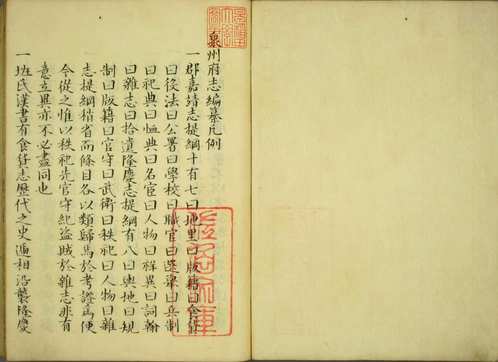 泉州府志編纂凡例
一郡嘉靖志提綱十有七曰地里曰版籍曰食貨
曰後法曰公署曰學校曰職官曰選舉曰兵制
曰祀典曰恤典曰名宦曰人物曰祥異曰詞翰
曰雜志曰拾遺隆慶志提綱有八曰輿地曰規
制曰版籍曰官守曰武衛曰秩祀曰人物曰雜
志提綱稍省而條目各以類歸焉於考證爲便
今從之惟以秩祀先官守紀盜賊於雜志非有
意立異亦不必盡同也
一班氏漢書有食貨志歷代之史遞相沿襲隆慶